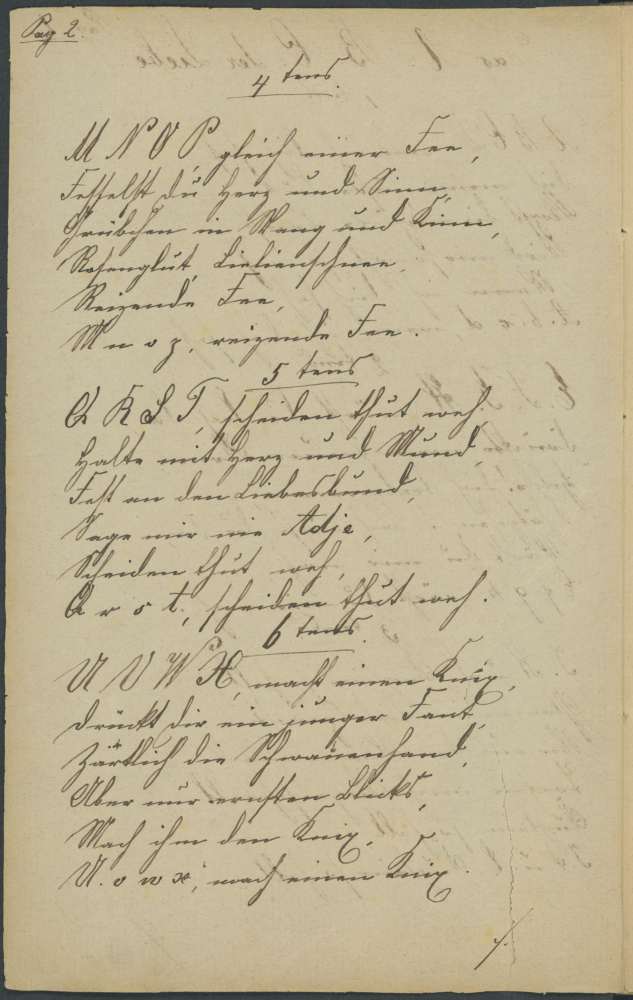 Pag 2.
4 tens.
M N O P, gleich einer Fee,
Fesselst du Herz und Sinn,
Grübchen in Wang und Kinn,
Rosenglut, Lielienschnee,
Reizende Fee,
M n o p, reizende Fee.
5 tens
Q R S T, scheiden thut weh,
Halte mit Herz und Mund,
Fest an den Liebesbund,
Sage mir nie Adje,
Scheiden thut weh,
Q r s t, scheiden thut weh.
6 tens.
U V W X, mach einen Knix,
Drückt dir ein junger Fant,
Zärtlich die Schwanenhand,
Aber nur ernsten Blicks,
Mach ihm den Knix,
U. v w x, mach einen Knix.